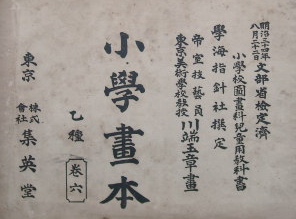 明治三十四年
八月二十二日
文部省檢定濟
小學校圖畫科兒童用教科書
學海指針社撰定
帝室技藝員
東京美術學校教授
川端玉章畫
小學畫本
乙種
卷六
東京
株式
會社
集英堂